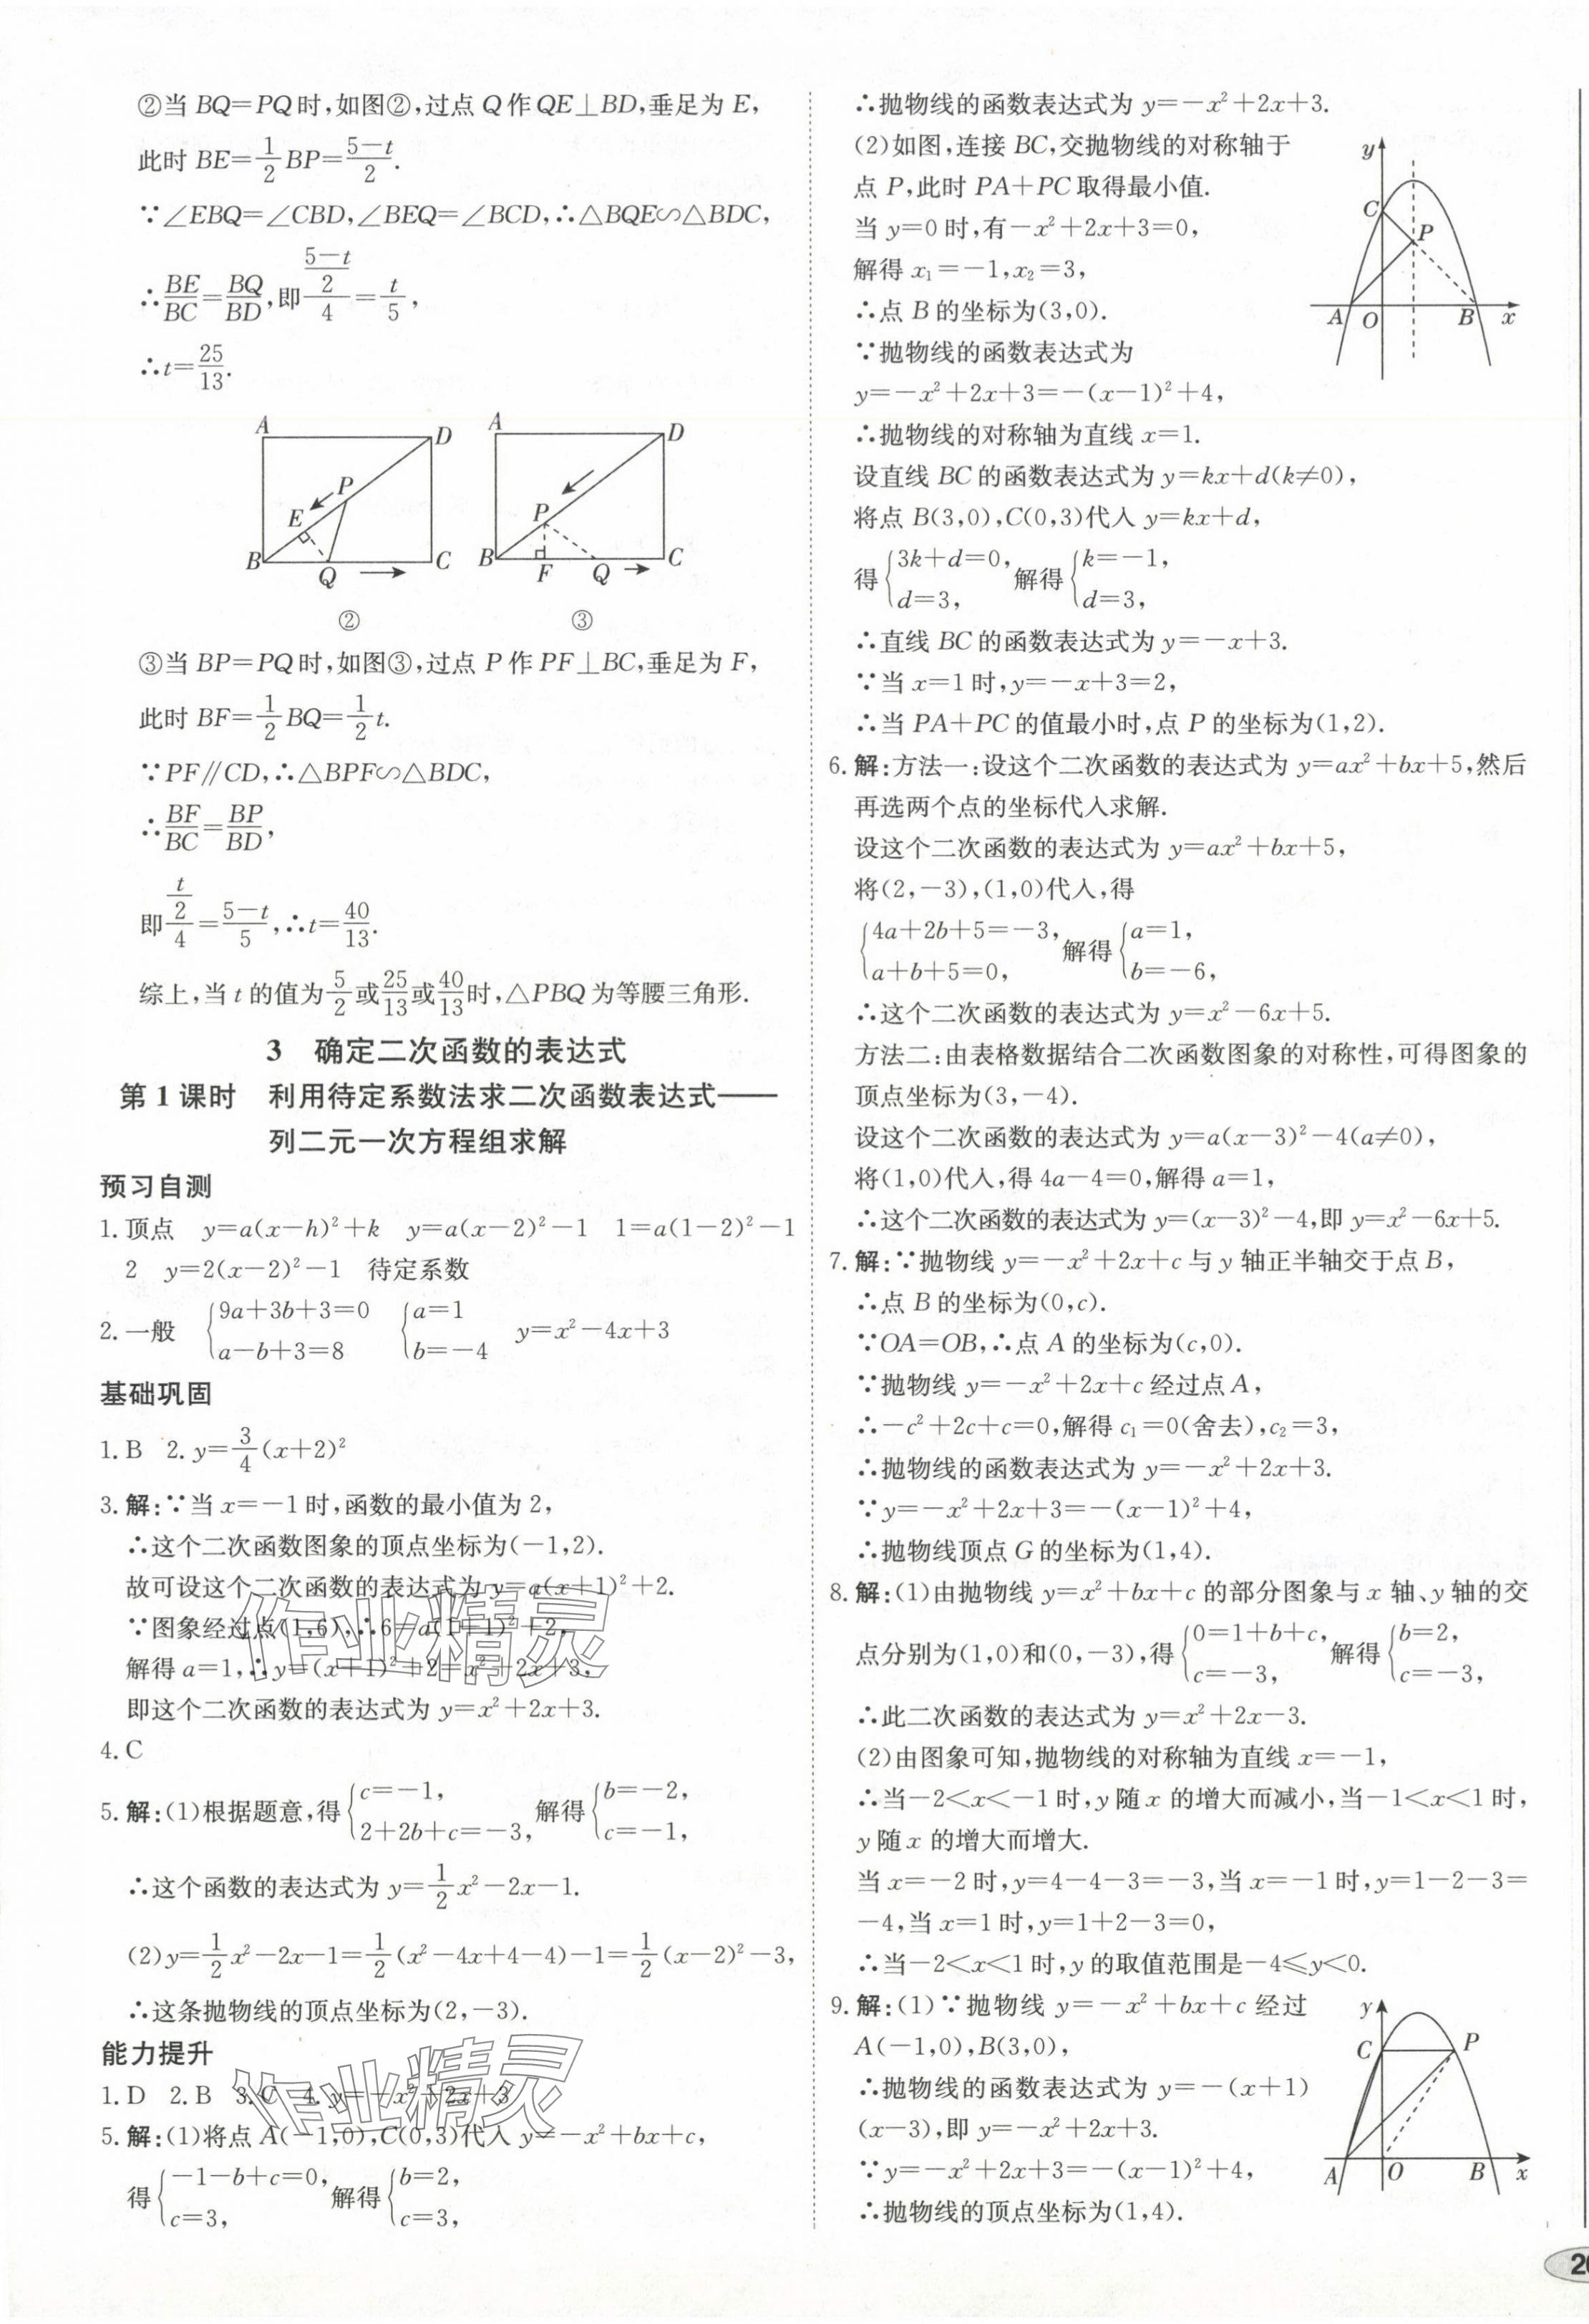 ②当 BQ=PQ时,如图②,过点 Q作 QE⊥BD,垂足为 E,
此时 BE=\frac{1}{2}BP=\frac{5-t}{2}.
∵∠EBQ=∠CBD,∠BEQ=∠BCD,∴△BQE∽△BDC,
∴\frac{BE}{BC}=\frac{BQ}{BD},即\frac{\frac{5-t}{2}}{4}=\frac{t}{5},
∴t=\frac{25}{13}.
A D P E B Q C
②
A D P B F Q C
③
③当 BP=PQ时,如图③,过点 P 作 PF⊥BC,垂足为 F,
此时 BF=\frac{1}{2}BQ=\frac{1}{2}t.
∵PF∥CD,∴△BPF∽△BDC,
∴\frac{BF}{BC}=\frac{BP}{BD},
即\frac{\frac{t}{2}}{4}=\frac{5-t}{5},∴t=\frac{40}{13}.
综上,当 t 的值为\frac{5}{2}或\frac{25}{13}或\frac{40}{13}时,△PBQ为等腰三角形.
3 确定二次函数的表达式
第1课时 利用待定系数法求二次函数表达式——
列二元一次方程组求解
预习自测
1.顶点 y=a(x-h)²+k y=a(x-2)²-1 1=a(1-2)²-1
2 y=2(x-2)²-1 待定系数
2.一般 {9a+3b+3=0 a-b+3=8 {a=1 b=-4 y=x²-4x+3
基础巩固
1.B 2.y=\frac{3}{4}(x+2)²
3.解:∵当 x=-1时,函数的最小值为2,
∴这个二次函数图象的顶点坐标为(-1,2).
故可设这个二次函数的表达式为 y=a(x+1)²+2.
∵图象经过点(1,6),∴6=a(1+1)²+2,
解得 a=1,∴y=(x+1)²+2=x²+2x+3,
即这个二次函数的表达式为 y=x²+2x+3.
4.C
5.解:(1)根据题意,得{c=-1, 2+2b+c=-3,解得{b=-2, c=-1,
∴这个函数的表达式为 y=\frac{1}{2}x²-2x-1.
(2)y=\frac{1}{2}x²-2x-1=\frac{1}{2}(x²-4x+4-4)-1=\frac{1}{2}(x-2)²-3,
∴这条抛物线的顶点坐标为(2,-3).
能力提升
1.D 2.B 3.C 4.y=-x²+2x+3
5.解:(1)将点 A(-1,0),C(0,3)代入 y=-x²+bx+c,
得{-1-b+c=0, c=3,解得{b=2, c=3,
∴抛物线的函数表达式为 y=-x²+2x+3.
(2)如图,连接 BC,交抛物线的对称轴于
点 P,此时 PA+PC取得最小值.
当 y=0时,有-x²+2x+3=0,
解得 x₁=-1,x₂=3,
∴点 B的坐标为(3,0).
∵抛物线的函数表达式为
y=-x²+2x+3=-(x-1)²+4,
y C P A O B x
∴抛物线的对称轴为直线 x=1.
设直线 BC的函数表达式为 y=kx+d(k≠0),
将点 B(3,0),C(0,3)代入 y=kx+d,
得{3k+d=0, d=3,解得{k=-1, d=3,
∴直线 BC的函数表达式为 y=-x+3.
∵当 x=1时,y=-x+3=2,
∴当 PA+PC的值最小时,点 P 的坐标为(1,2).
6.解:方法一:设这个二次函数的表达式为 y=ax²+bx+5,然后
再选两个点的坐标代入求解.
设这个二次函数的表达式为 y=ax²+bx+5,
将(2,-3),(1,0)代入,得
{4a+2b+5=-3, a+b+5=0,解得{a=1, b=-6,
∴这个二次函数的表达式为 y=x²-6x+5.
方法二:由表格数据结合二次函数图象的对称性,可得图象的
顶点坐标为(3,-4).
设这个二次函数的表达式为 y=a(x-3)²-4(a≠0),
将(1,0)代入,得 4a-4=0,解得 a=1,
∴这个二次函数的表达式为 y=(x-3)²-4,即 y=x²-6x+5.
7.解:∵抛物线 y=-x²+2x+c与 y 轴正半轴交于点 B,
∴点 B 的坐标为(0,c).
∵OA=OB,∴点 A 的坐标为(c,0).
∵抛物线 y=-x²+2x+c经过点A,
∴-c²+2c+c=0,解得 c₁=0(舍去),c₂=3,
∴抛物线的函数表达式为 y=-x²+2x+3.
∵y=-x²+2x+3=-(x-1)²+4,
∴抛物线顶点 G的坐标为(1,4).
8.解:(1)由抛物线 y=x²+bx+c 的部分图象与 x 轴、y 轴的交
点分别为(1,0)和(0,-3),得{0=1+b+c, c=-3,解得{b=2, c=-3,
∴此二次函数的表达式为 y=x²+2x-3.
(2)由图象可知,抛物线的对称轴为直线 x=-1,
∴当-2<x<-1时,y 随 x 的增大而减小,当-1<x<1时,
y 随 x 的增大而增大.
当 x=-2时,y=4-4-3=-3,当 x=-1时,y=1-2-3=
-4,当 x=1时,y=1+2-3=0,
∴当-2<x<1时,y的取值范围是-4≤y<0.
9.解:(1)∵抛物线 y=-x²+bx+c 经过
A(-1,0),B(3,0),
∴抛物线的函数表达式为 y=-(x+1)
(x-3),即 y=-x²+2x+3.
∵y=-x²+2x+3=-(x-1)²+4,
∴抛物线的顶点坐标为(1,4).
y C P A O B x
作业精灵
作业精灵